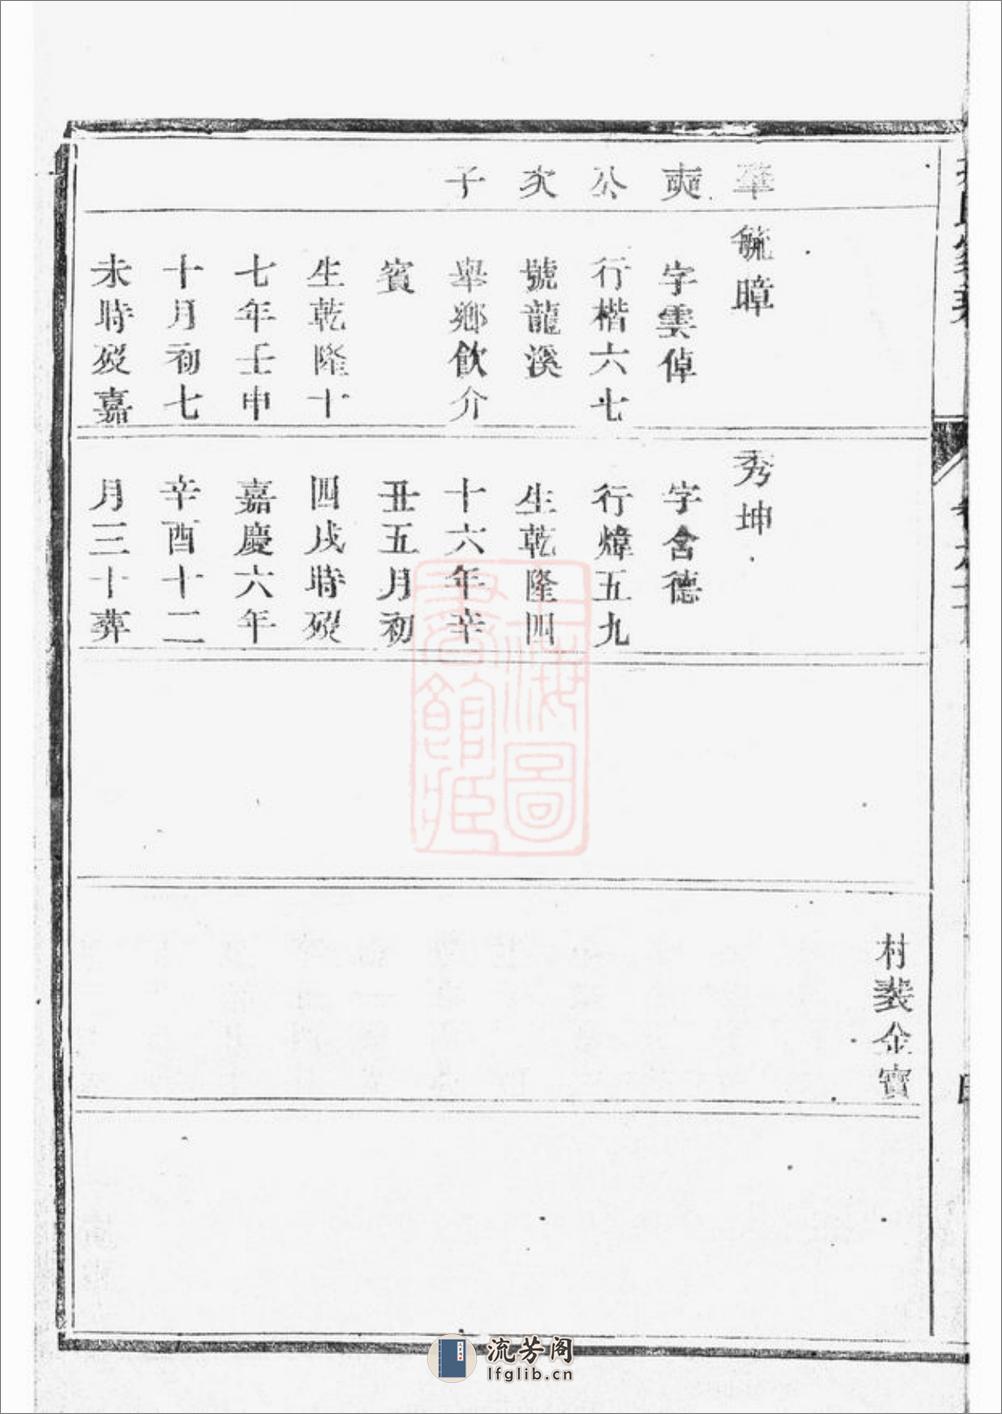 華奭公次子
毓暲
字雲倬
行楷六七
號龍溪
舉鄉飲介
賓
生乾隆十
七年壬申
十月初七
未時歿嘉
秀坤
字含德
行煒五九
生乾隆四
十六年辛
丑五月初
四戌時歿
嘉慶六年
辛酉十二
月三十葬
村裴金寶
上海圖
書館藏
流芳阁
lfglib.cn